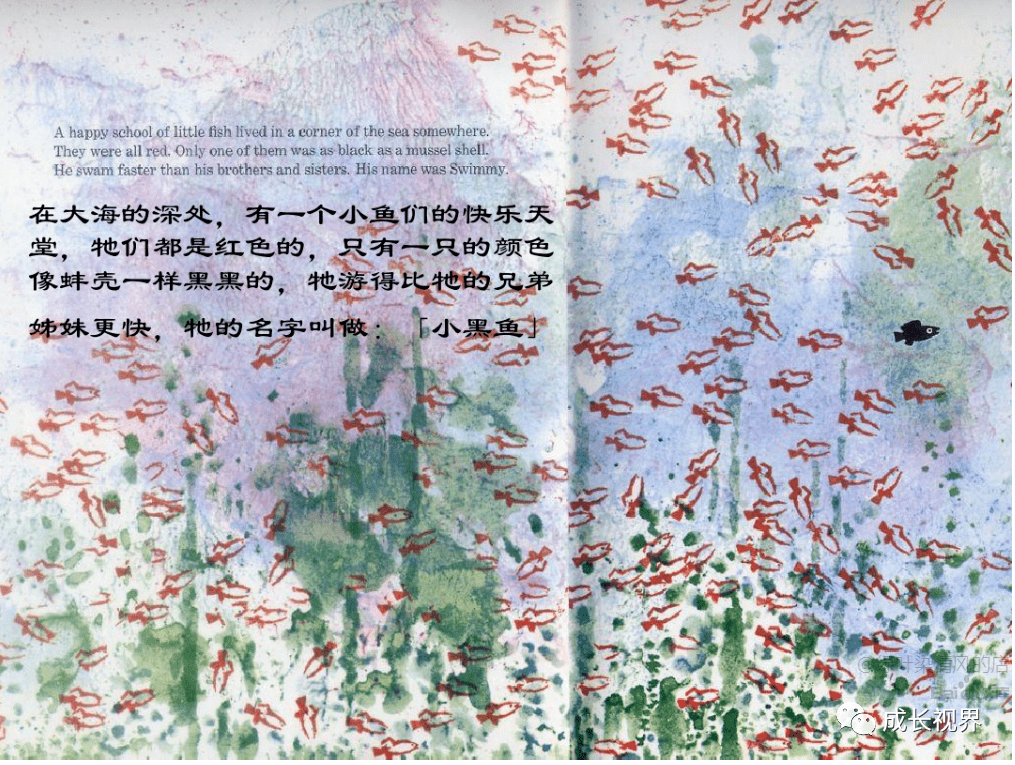 A happy school of little fish lived in a corner of the sea somewhere.
They were all red. Only one of them was as black as a mussel shell.
He swam faster than his brothers and sisters. His name was Swimmy.
在大海的深处，有一个小鱼们的快乐天
堂，牠们都是红色的，只有一只的颜色
像蚌壳一样黑黑的，牠游得比牠的兄弟
姊妹更快，牠的名字叫做：「小黑鱼」
成长视界